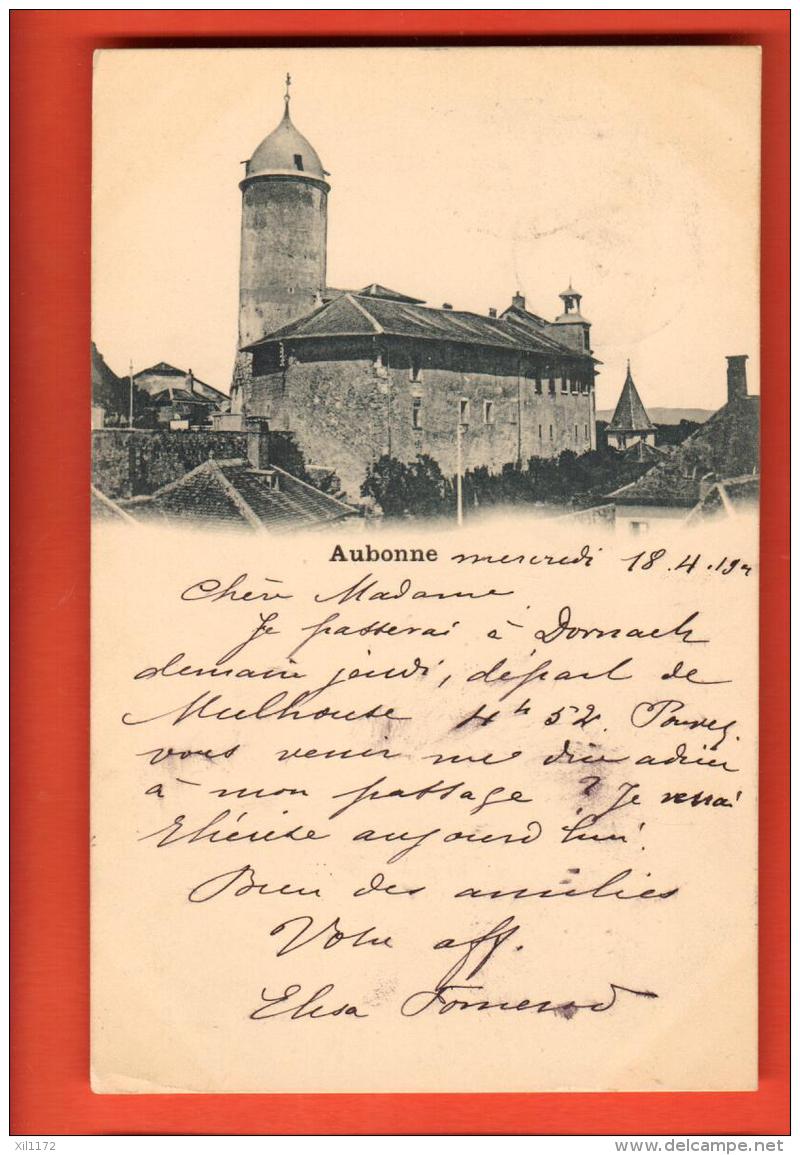 Aubonne mercredi 18.4.190
Chère Madame
Je passerai à Dornach
demain jeudi, départ de
Mulhouse 4h 52. Pouvez
vous venir me dire adieu
à mon passage ? Je verrai
Thérèse aujourd'hui.
Bien des amitiés
Votre aff.
Elisa Pomerod
xil1172
www.delcampe.net